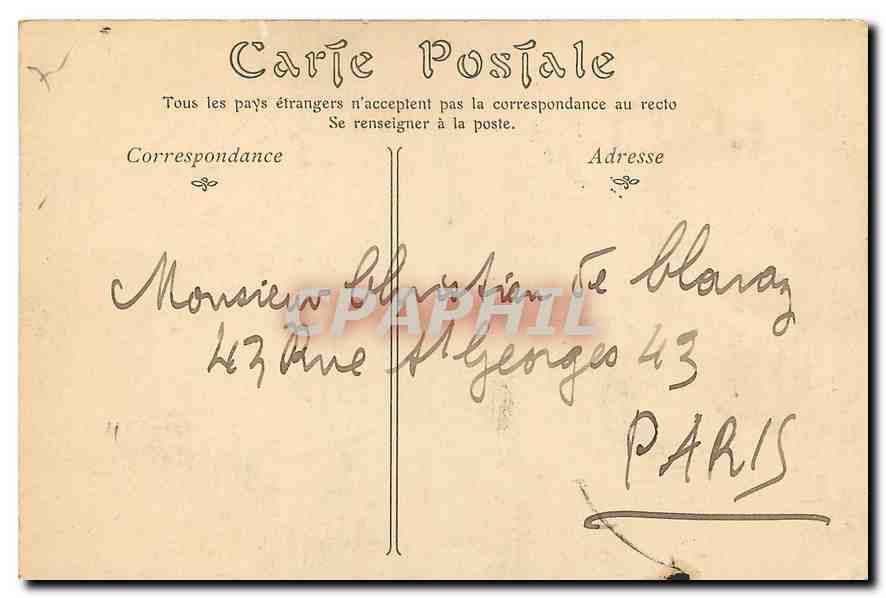 Carte Postale
Tous les pays étrangers n'acceptent pas la correspondance au recto
Se renseigner à la poste.
Correspondance
Adresse
Monsieur Christian de Claraz
CPAPHIL
43 Rue St Georges 43
PARIS